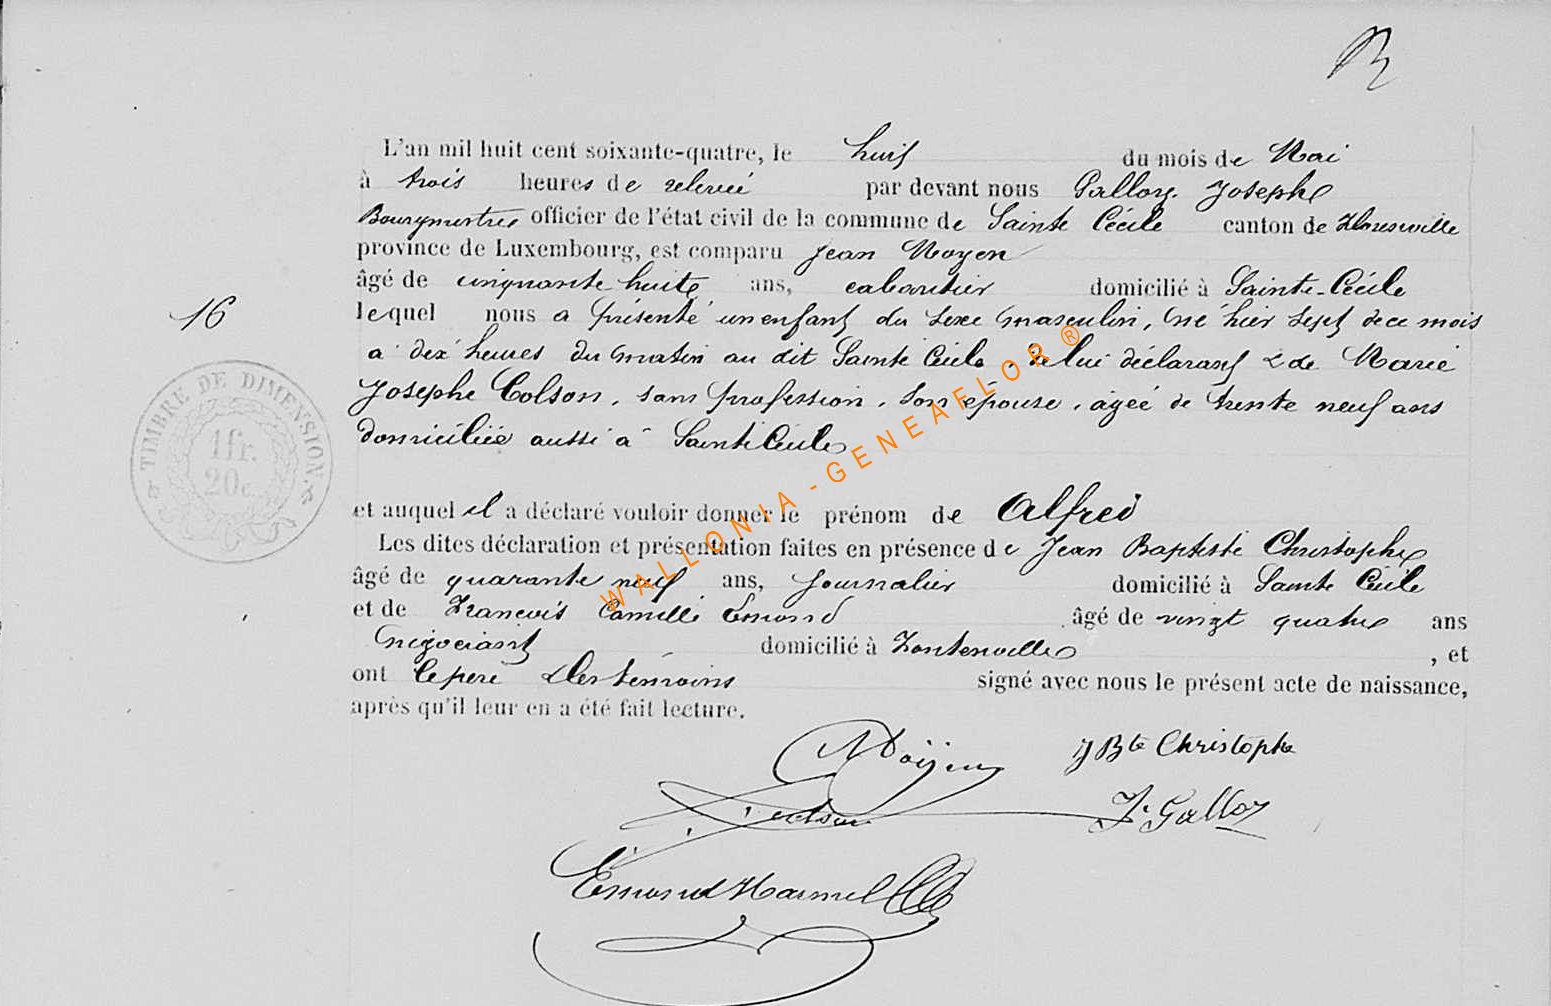 L'an mil huit cent soixante-quatre, le huit du mois de Mai
à trois heures de relevée par devant nous Galloy Joseph
Bourgmestre officier de l'état civil de la commune de Sainte Cécile canton de Florenville
province de Luxembourg, est comparu Jean Noyen
âgé de cinquante huit ans, cabaretier domicilié à Sainte-Cécile
16
lequel nous a présenté un enfant du sexe masculin, né hier sept de ce mois
à dix heures du matin au dit Sainte Cécile, de lui déclarant & de Marie
Josephe Colson, sans profession, son épouse, agée de trente neuf ans
domiciliée aussi à Sainte Cécile
TIMBRE DE DIMENSION.
1 fr.
20 c.
et auquel il a déclaré vouloir donner le prénom de Alfred
Les dites déclaration et présentation faites en présence de Jean Baptiste Christophe
âgé de quarante neuf ans, journalier domicilié à Sainte Cécile
et de François Camille Emond âgé de vingt quatre ans
négociant domicilié à Fontenoille, et
ont le père & les témoins signé avec nous le présent acte de naissance,
après qu'il leur en a été fait lecture.
JBte Christophe
J. Galloy
Emond Harmel
WALLONIA - GENEAFLOR ®